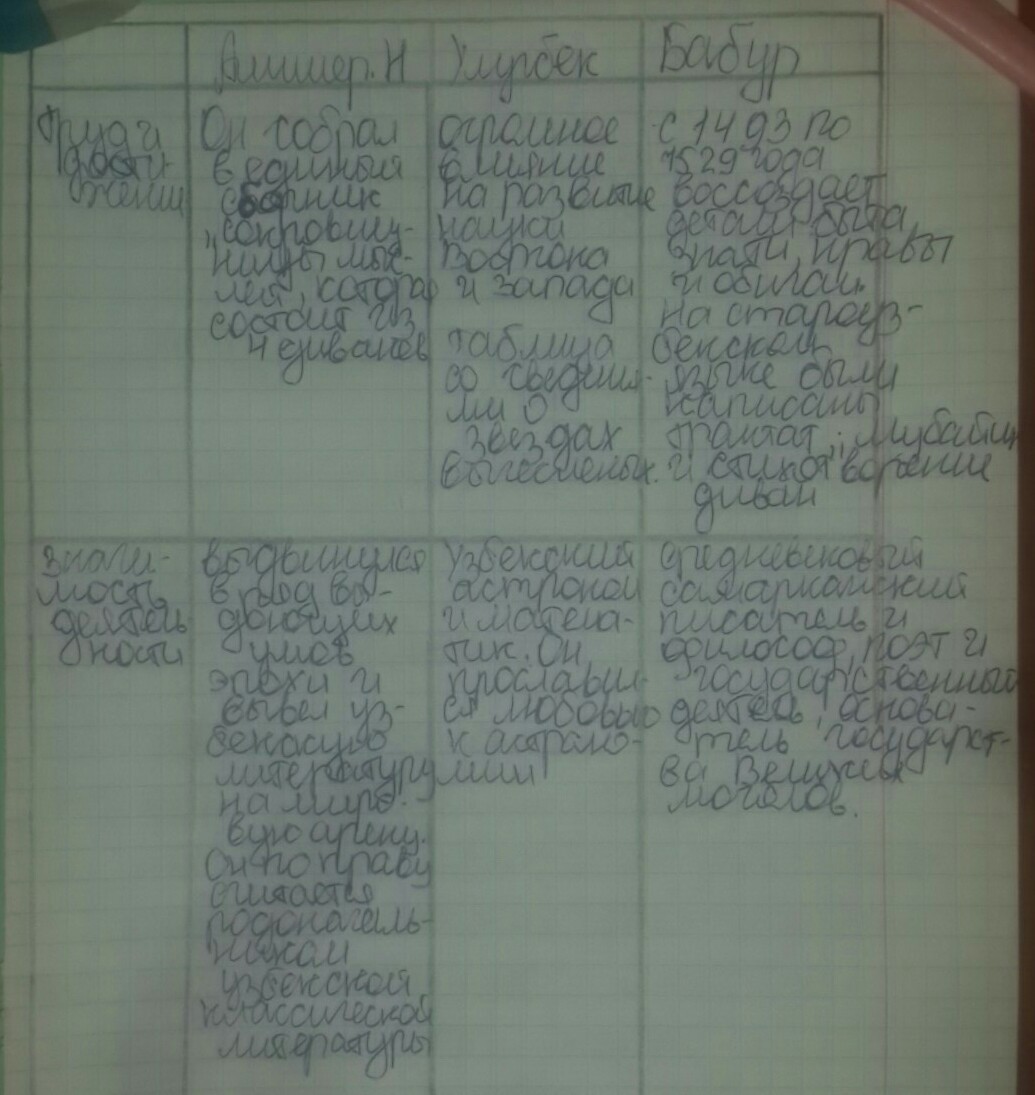 Алишер.Н
Улугбек
Бабур
Труд и
дости-
жения
Он собрал
в единый
сборник
„сокровищ-
ницы мыс-
лей", котора
состоит из
4 диванов
огромное
влияние
на развитие
науки
Востока
и запада
таблица
со сведени-
ми о
звездах
с 1493 по
1529 года
воссоздает
детали быта,
знати, нравы
и обычаи.
на староуз-
бекском
языке были
написаны
трактат „Мубайин
и стихотворение
диван
значи-
мость
деятель
ности
выдвинулся
в ряд ве-
дующих
умов
эпохи и
вывел уз-
бекскую
литературу
на миро-
вую арену.
Он по праву
считается
родоначаль-
ником
узбекской
классической
литературы
Узбекский
астроном
и матема-
тик. Он
прославил-
ся любовью
к астроно-
мии
средневековый
самаркандский
писатель и
философ, поэт и
государственный
деятель, основа-
тель государст-
ва Великих
моголов.